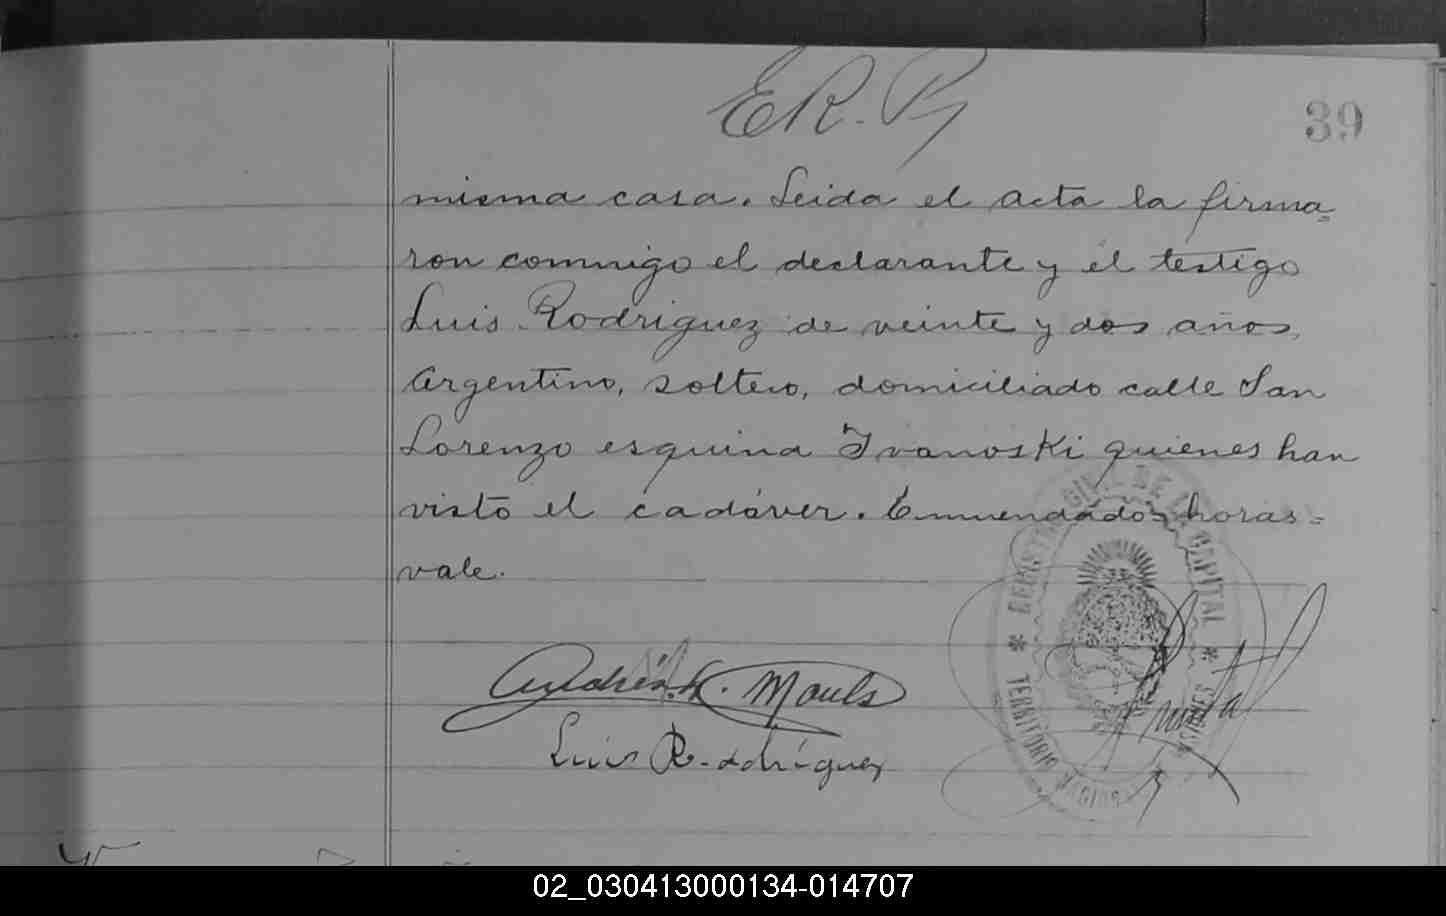 E R. P
39
misma casa. Leida el acta la firma=
ron commigo el declarante y el testigo
Luis Rodriguez de veinte y dos años,
Argentino, soltero, domiciliado calle San
Lorenzo esquina Ivanoski quienes han
visto el cadáver. Enmendado, horas=
vale.
REGISTRO CIVIL DE LA CAPITAL
TERRITORIO NACIONAL MISIONES
Andrés K. Mouls
Luis Rodríguez
02_030413000134-014707